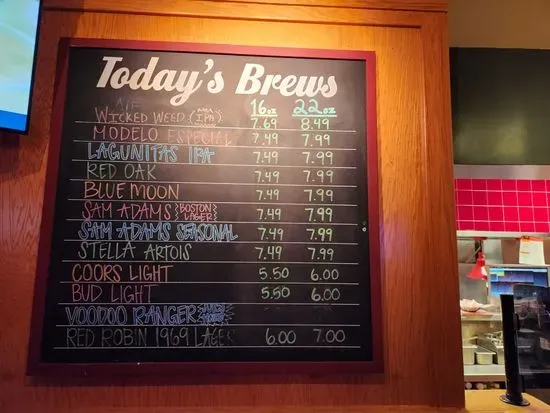 Today's Brews
16oz 22oz
WICKED WEED IPA 7.69 8.49
MODELO ESPECIAL 7.49 7.99
LAGUNITAS IPA 7.49 7.99
RED OAK 7.49 7.99
BLUE MOON 7.49 7.99
SAM ADAMS BOSTON LAGER 7.49 7.99
SAM ADAMS SEASONAL 7.49 7.99
STELLA ARTOIS 7.49 7.99
COORS LIGHT 5.50 6.00
BUD LIGHT 5.50 6.00
VOODOO RANGER
RED ROBIN 1969 LAGER 6.00 7.00